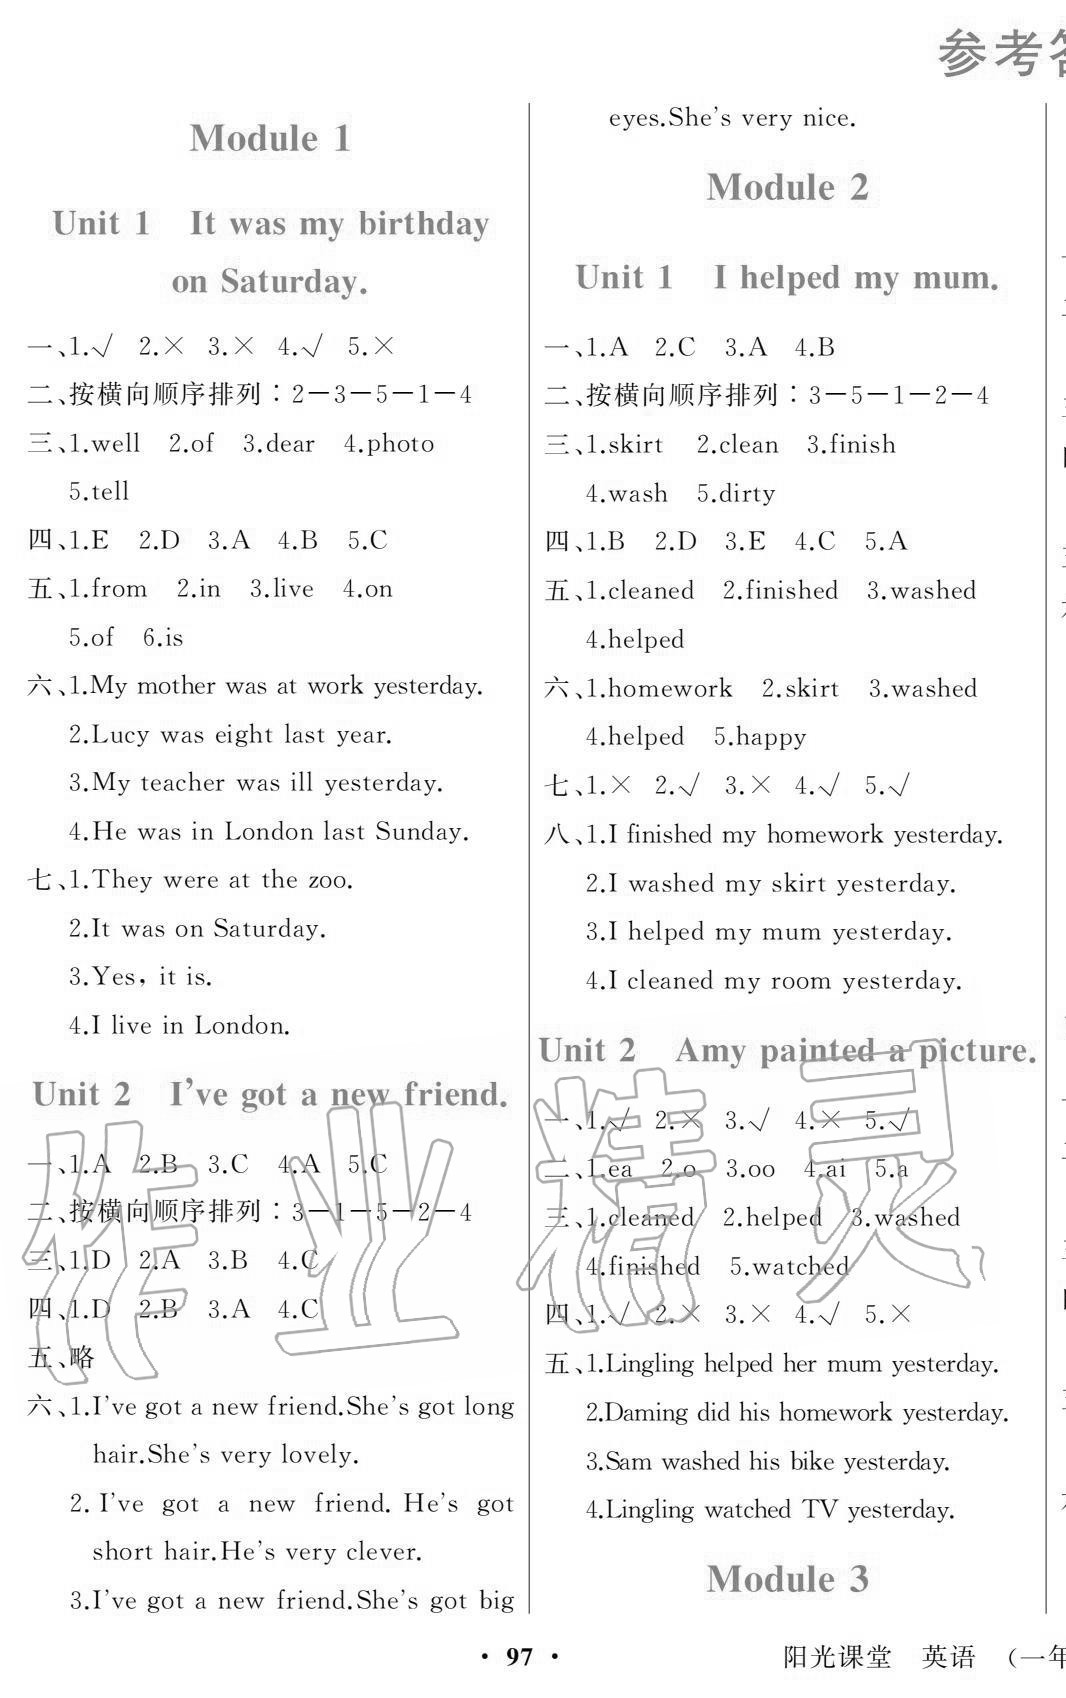 参考答
Module 1
Unit 1 It was my birthday
on Saturday.
一、1.√ 2.× 3.× 4.√ 5.×
二、按横向顺序排列：2－3－5－1－4
三、1.well 2.of 3.dear 4.photo
5.tell
四、1.E 2.D 3.A 4.B 5.C
五、1.from 2.in 3.live 4.on
5.of 6.is
六、1.My mother was at work yesterday.
2.Lucy was eight last year.
3.My teacher was ill yesterday.
4.He was in London last Sunday.
七、1.They were at the zoo.
2.It was on Saturday.
3.Yes, it is.
4.I live in London.
Unit 2 I’ve got a new friend.
一、1.A 2.B 3.C 4.A 5.C
二、按横向顺序排列：3－1－5－2－4
三、1.D 2.A 3.B 4.C
四、1.D 2.B 3.A 4.C
五、略
六、1.I’ve got a new friend.She’s got long
hair.She’s very lovely.
2. I’ve got a new friend. He’s got
short hair.He’s very clever.
3.I’ve got a new friend.She’s got big
eyes.She’s very nice.
Module 2
Unit 1 I helped my mum.
一、1.A 2.C 3.A 4.B
二、按横向顺序排列：3－5－1－2－4
三、1.skirt 2.clean 3.finish
4.wash 5.dirty
四、1.B 2.D 3.E 4.C 5.A
五、1.cleaned 2.finished 3.washed
4.helped
六、1.homework 2.skirt 3.washed
4.helped 5.happy
七、1.× 2.√ 3.× 4.√ 5.√
八、1.I finished my homework yesterday.
2.I washed my skirt yesterday.
3.I helped my mum yesterday.
4.I cleaned my room yesterday.
Unit 2 Amy painted a picture.
一、1.√ 2.× 3.√ 4.× 5.√
二、1.ea 2.o 3.oo 4.ai 5.a
三、1.cleaned 2.helped 3.washed
4.finished 5.watched
四、1.√ 2.× 3.× 4.√ 5.×
五、1.Lingling helped her mum yesterday.
2.Daming did his homework yesterday.
3.Sam washed his bike yesterday.
4.Lingling watched TV yesterday.
Module 3
作业精灵
· 97 ·
阳光课堂 英语 （一年